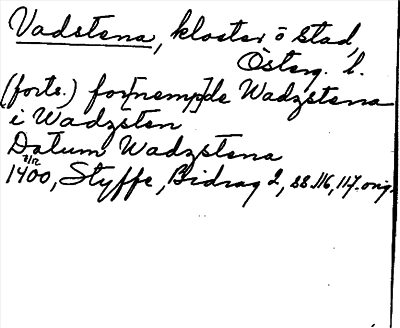 Vadstena, kloster o stad,
Österg. l.
(forts.) for[nemp]de Wadzstena
i Wadzsten
Datum Wadzstena
1400, Styffe, Bidrag 2, ss. 116, 117. orig.